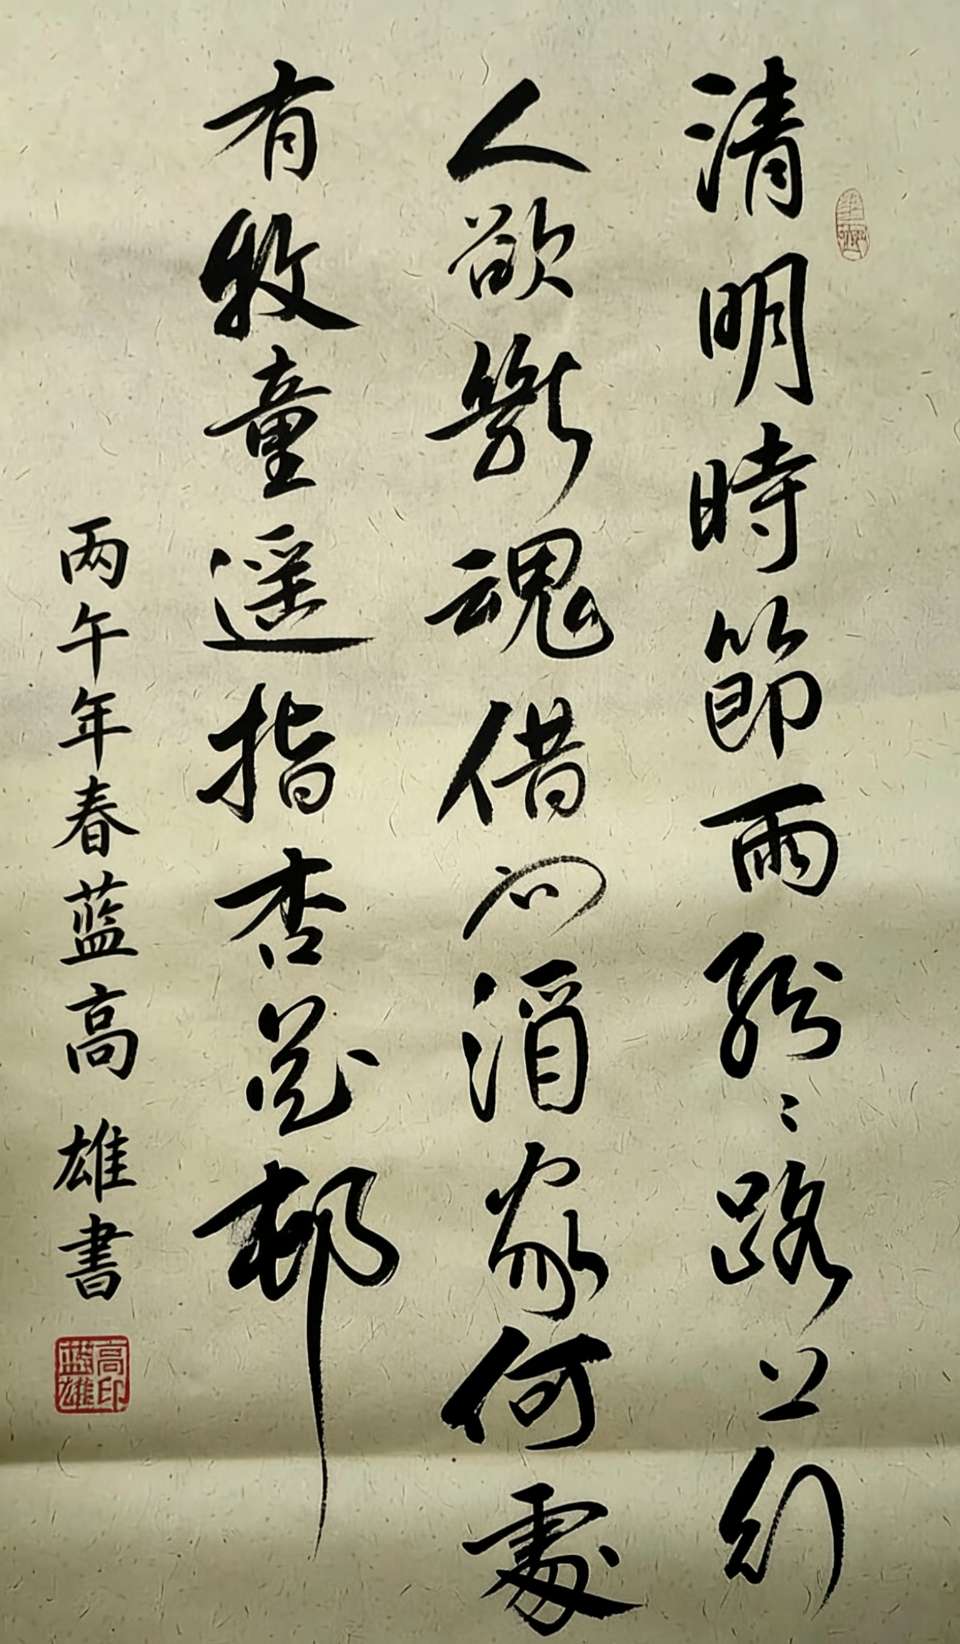 清明時節雨紛〻路上行
人欲斷魂借問酒家何處
有牧童遥指杏花邨
丙午年春藍高雄書
高印
藍雄